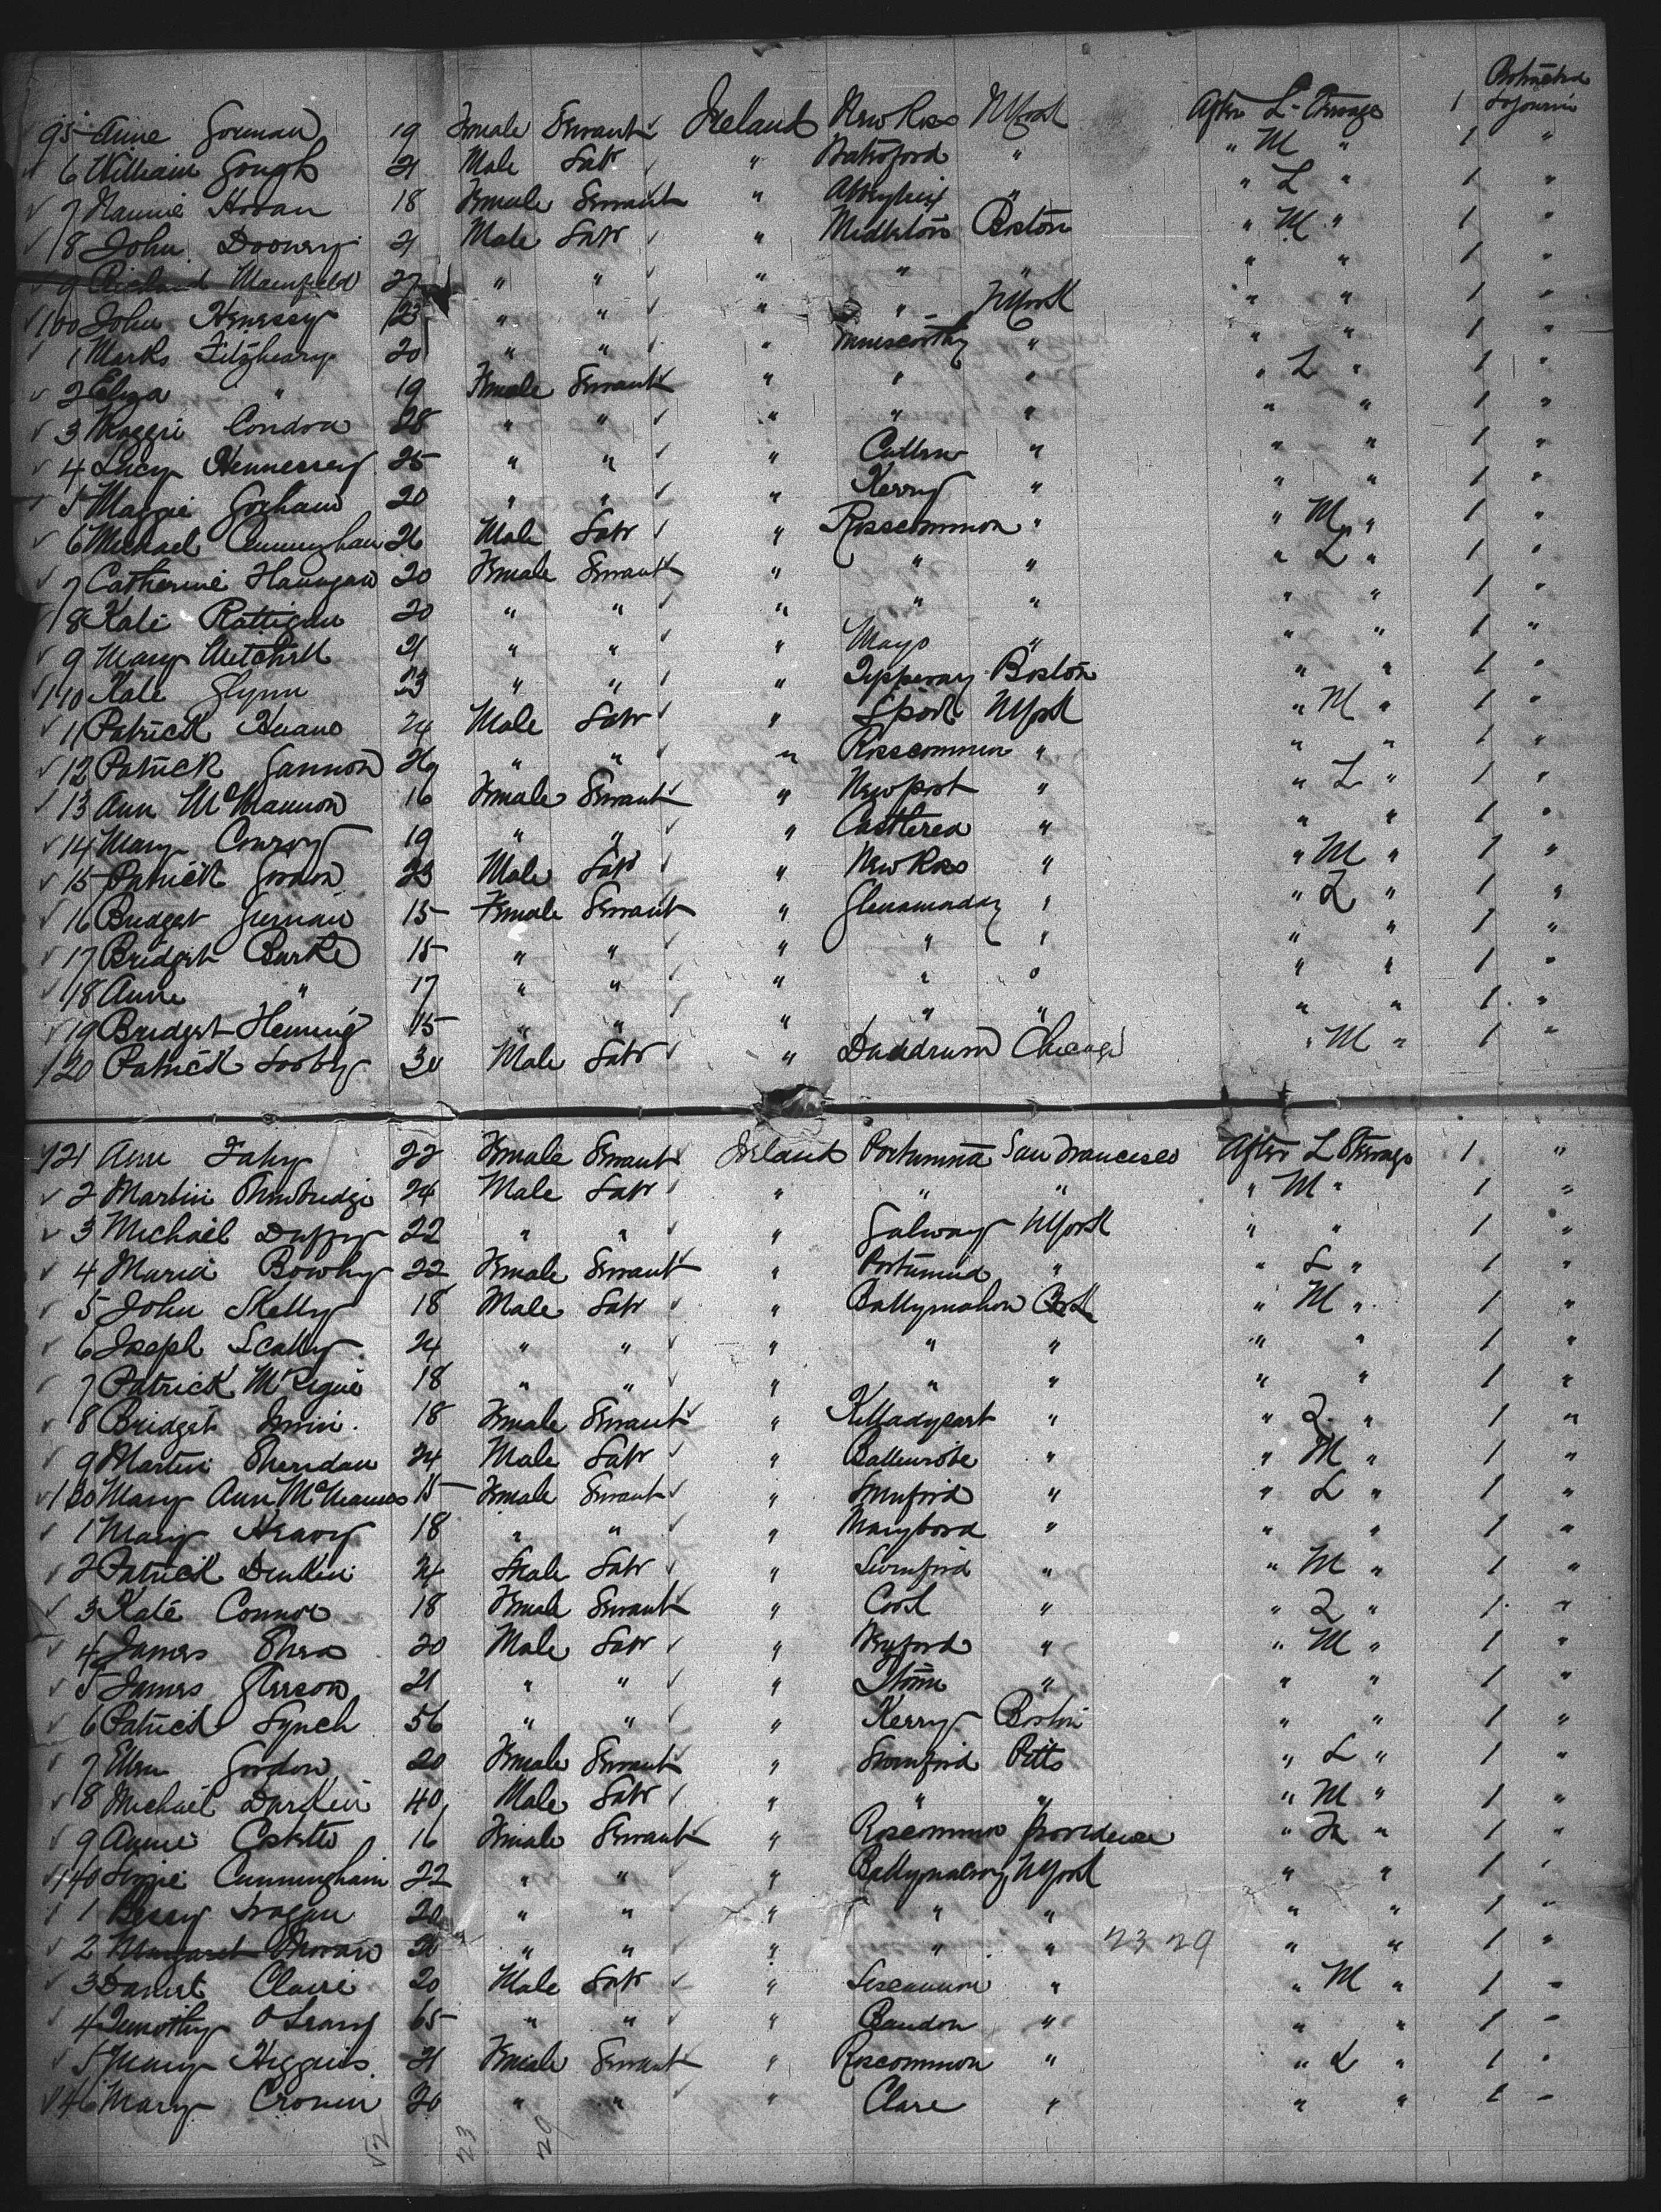 95 Anne Gorman 19 Female Servant Ireland New Ross NYork After L Steerage 1 Protracted Sojourn
6 William Gough 21 Male Labr " Waterford " " M " 1 "
7 Nannie Horan 18 Female Servant " Abbeyleix " " L " 1 "
8 John Dooney 21 Male Labr " Midleton Boston " M " 1 "
9 Richard Mansfield 27 " " " " " " " 1 "
100 John Henessy 23 " " " " NYork " " 1 "
1 Marks Fitzhenry 20 " " " Enniscorthy " " " 1 "
2 Eliza " 19 Female Servant " " " " L " 1 "
3 Maggie Condra 28 " " " " " " " 1 "
4 Lucy Hennessey 25 " " " Cullen " " " 1 "
5 Maggie Graham 20 " " " Kerry " " " 1 "
6 Michael Cunningham 26 Male Labr " Rosscommon " " M " 1 "
7 Catherine Flanigan 20 Female Servant " " " " L " 1 "
8 Kate Rattigan 20 " " " " " " " 1 "
9 Mary Mitchell 21 " " " Mayo " " " 1 "
110 Kate Glynn 23 " " " Tipperary Boston " " 1 "
11 Patrick Huane 24 Male Labr " NYork " M " 1 "
12 Patrick Gannon 26 " " " Rosscommon " " " 1 "
13 Ann McMannon 16 Female Servant " Newport " " L " 1 "
14 Mary Conroy 19 " " " Castlerea " " " 1 "
15 Patrick Gordon 23 Male Labr " New Ross " " M " 1 "
16 Bridget Gernain 15 Female Servant " Glenamaday " " L " 1 "
17 Bridget Burke 15 " " " " " " " 1 "
18 Anne " 17 " " " " " " " 1 "
19 Bridget Fleming 15 " " " " " " " 1 "
120 Patrick Looby 30 Male Labr " Dundrum Chicago " M " 1 "
121 Ann Fahy 22 Female Servant Ireland Portumna San Francisco After L Steerage 1 "
2 Martin Trowbridge 24 Male Labr " " " " M " 1 "
3 Michael Duffy 22 " " " Galway NYork " " 1 "
4 Maria Bowhy 22 Female Servant " Portumna " " L " 1 "
5 John Skelly 18 Male Labr " Ballymahon " M " 1 "
6 Joseph Scally 24 " " " " " " " 1 "
7 Patrick McTigue 18 " " " " " " " 1 "
8 Bridget Irwin 18 Female Servant " Killadysart " " L " 1 "
9 Martin Sheridan 24 Male Labr " Ballinrobe " " M " 1 "
130 Mary Ann McManus 15 Female Servant " " " L " 1 "
1 Mary Heavy 18 " " " Maryboro " " " 1 "
2 Patrick Durkin 24 Male Labr " Swinford " " M " 1 "
3 Kate Connor 18 Female Servant " Cork " " L " 1 "
4 James Shea 20 Male Labr " Wexford " " M " 1 "
5 James Gleeson 21 " " " " " " 1 "
6 Patrick Lynch 56 " " " Kerry Boston " " 1 "
7 Ellen Gordon 20 Female Servant " Swinford Pitts " L " 1 "
8 Michael Durkin 40 Male Labr " " " " M " 1 "
9 Annie Costello 16 Female Servant " Roscommon Providence " L " 1 "
140 Lizzie Cunningham 22 " " " NYork " " 1 "
1 Bessy Gragan 20 " " " " " " " 1 "
2 Margaret Moran 20 " " " " " 23 29 " " 1 "
3 Daniel Clair 20 Male Labr " Liscannon " " M " 1 "
4 Timothy O'Leary 65 " " " Bandon " " " 1 "
5 Mary Higgins 21 Female Servant " Roscommon " " L " 1 "
146 Mary Cronin 20 " " " Clare " " " 1 "
52 23 29